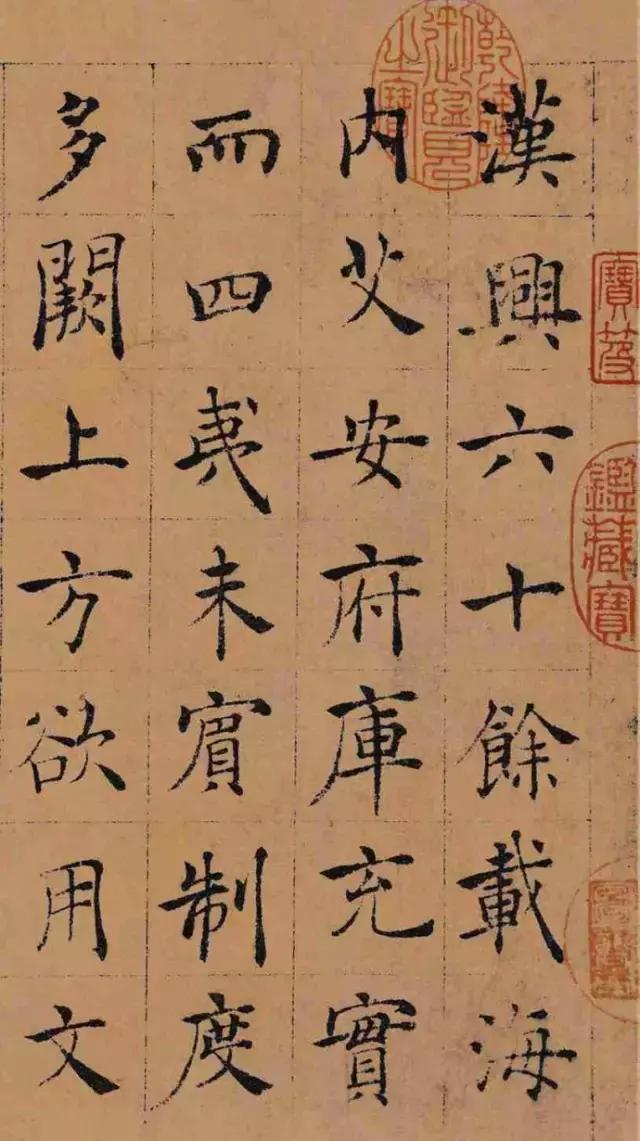 漢興六十餘載海
內艾安府庫充實
而四夷未賔制度
多闕上方欲用文
乾隆御覽之寶
寶笈
鑑藏寶